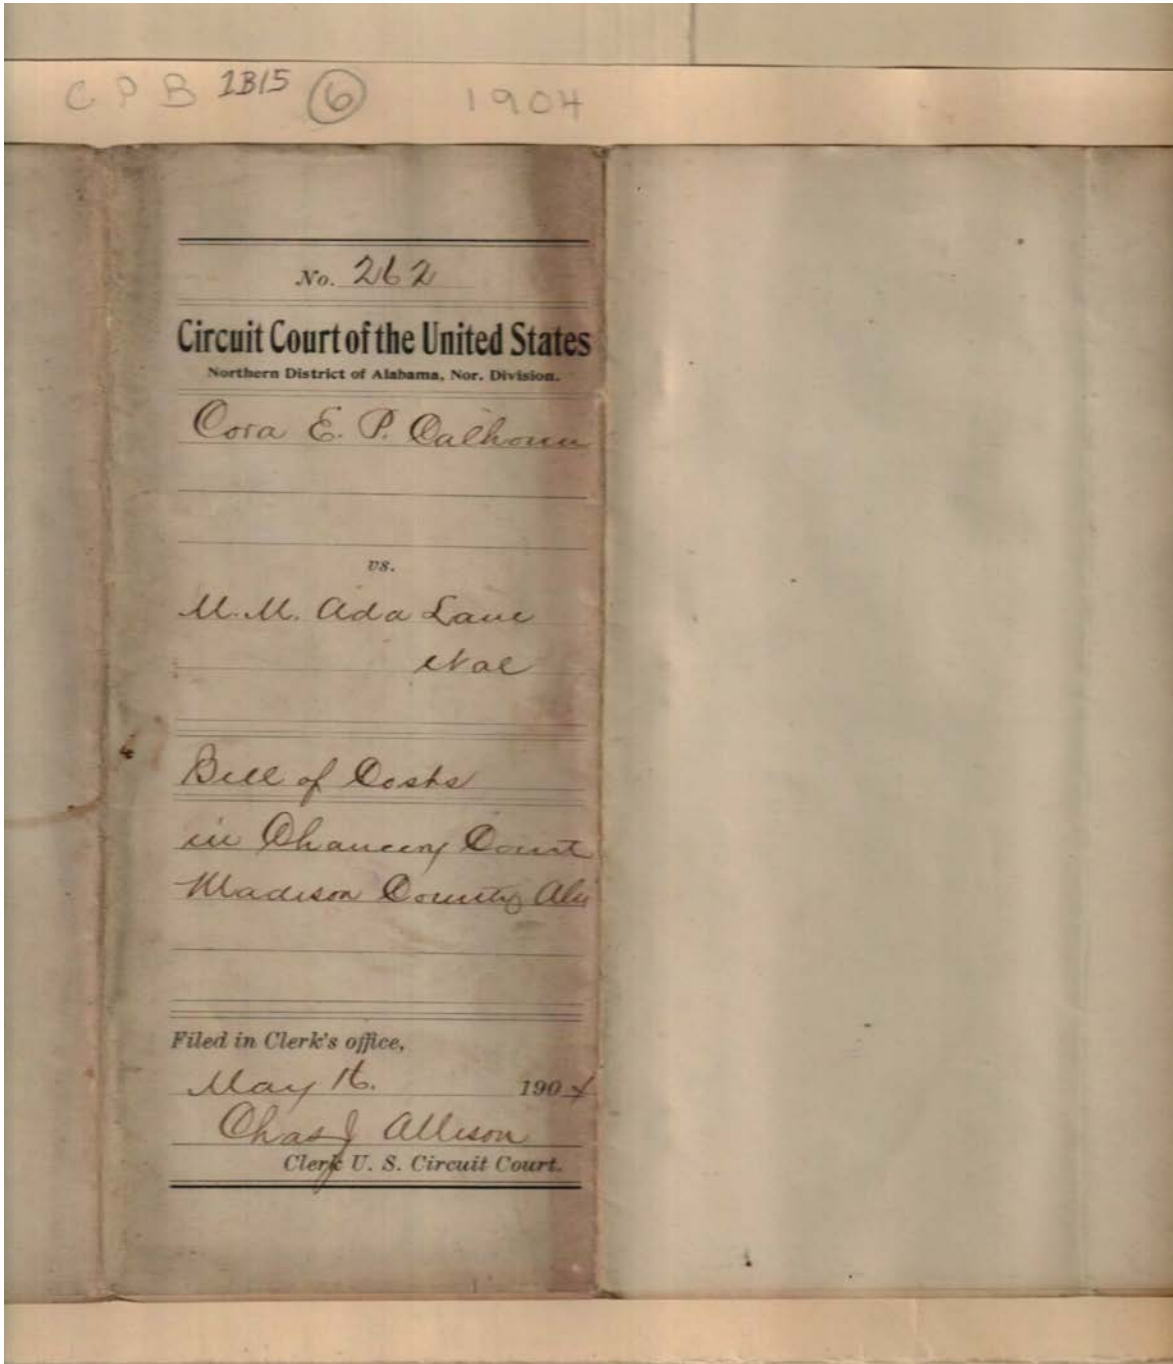 C P B 1B15 6 1904
No. 262
Circuit Court of the United States
Northern District of Alabama, Nor. Division.
Cora E. P. Calhoun
vs.
M. M. Ada Lane
et al
Bill of Costs
in Chancery Court
Madison County Ala
Filed in Clerk's office,
May 16. 1904
Chas J Allison
Clerk U. S. Circuit Court.